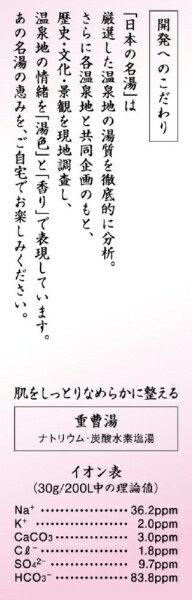 開発へのこだわり
「日本の名湯」は
厳選した温泉地の湯質を徹底的に分析。
さらに各温泉地と共同企画のもと、
歴史・文化・景観を現地調査し、
温泉地の情緒を「湯色」と「香り」で表現しています。
あの名湯の恵みを、ご自宅でお楽しみください。
肌をしっとりなめらかに整える
重曹湯
ナトリウム-炭酸水素塩湯
イオン表
(30g/200L中の理論値)
Na⁺ ………………… 36.2ppm
K⁺ ………………… 2.0ppm
CaCO₃ ………………… 3.0ppm
Cℓ⁻ ………………… 1.8ppm
SO₄²⁻ ………………… 9.7ppm
HCO₃⁻ ………………… 83.8ppm